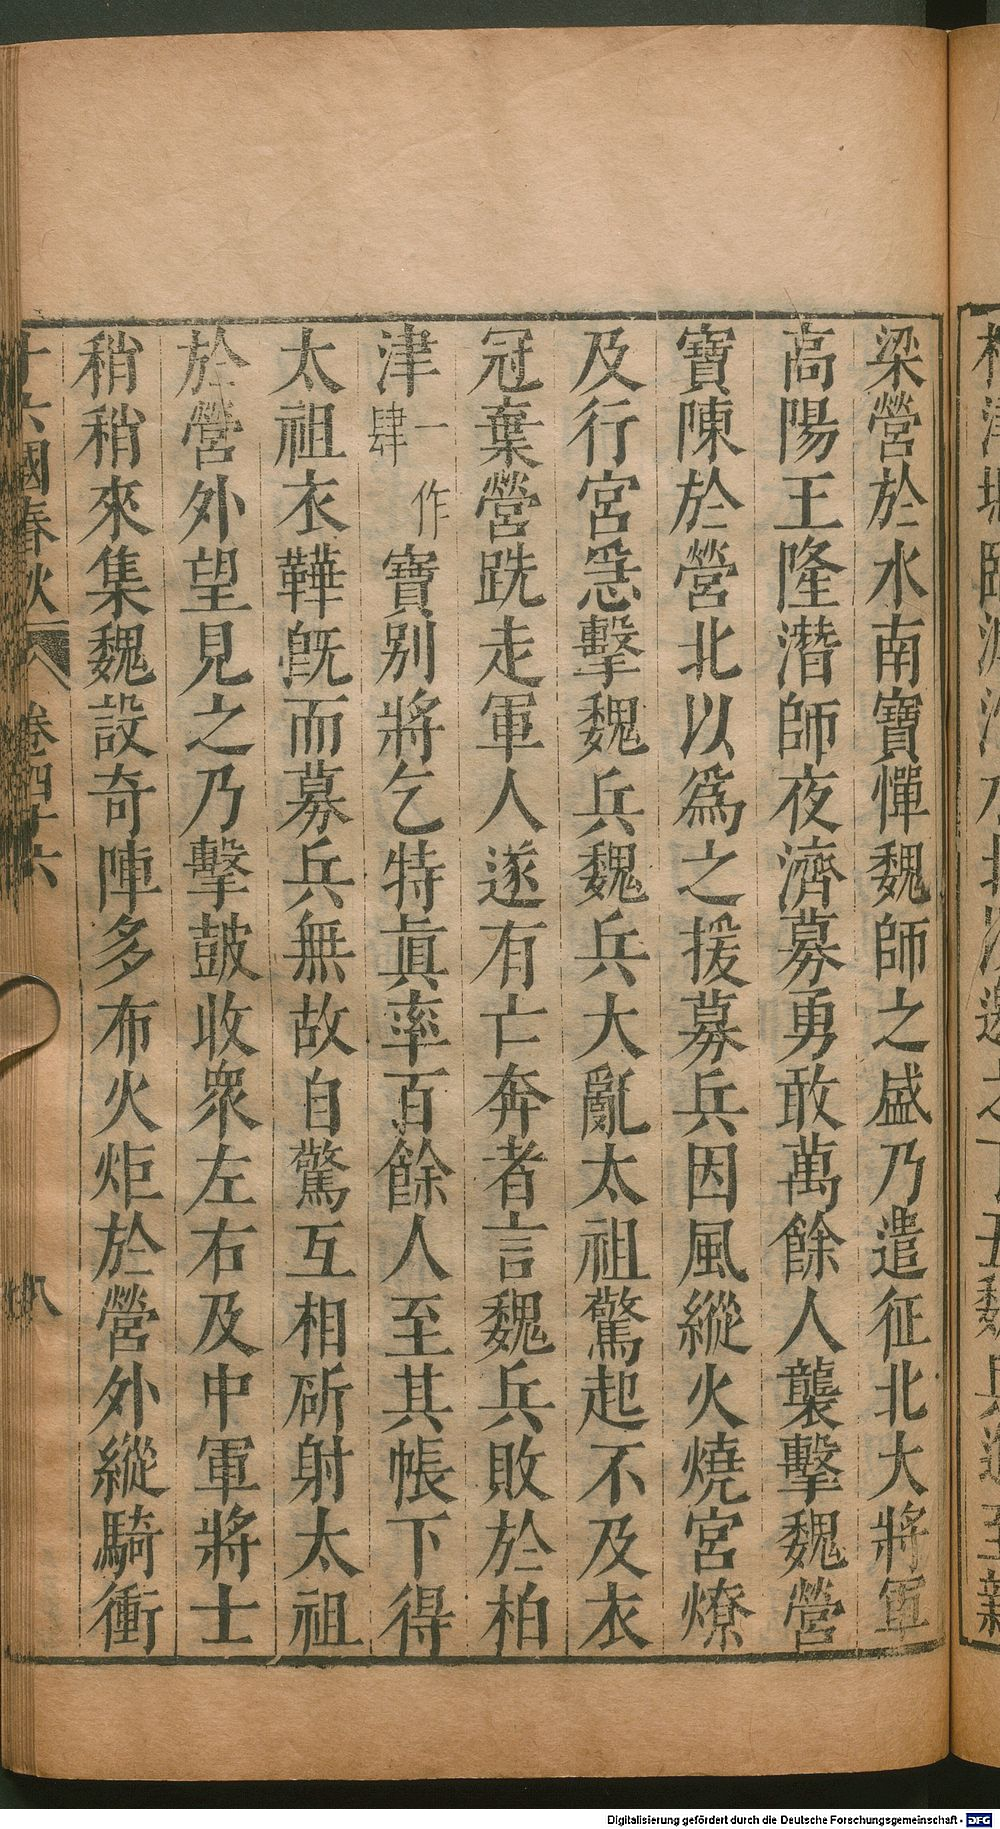 梁營於水南寶憚魏師之盛乃遣征北大將軍
高陽王隆潛師夜濟募勇敢萬餘人襲擊魏營
寶陳於營北以爲之援募兵因風縱火燒宮燎
及行宮急擊魏兵魏兵大亂太祖驚起不及衣
冠棄營跣走軍人遂有亡奔者言魏兵敗於柏
津一作肆寶别將乞特眞率百餘人至其帳下得
太祖衣鞾旣而募兵無故自驚互相斫射太祖
於營外望見之乃擊鼓收衆左右及中軍將士
稍稍來集魏設奇陣多布火炬於營外縱騎衝
十六國春秋 卷四十六 八
Digitalisierung gefördert durch die Deutsche Forschungsgemeinschaft - DFG